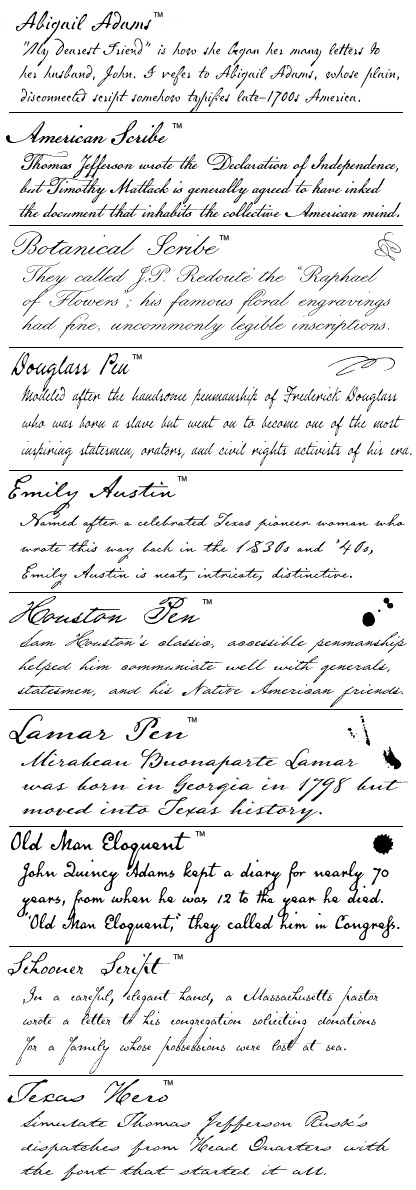 Abigail Adams™
"My Dearest Friend" is how she began her many letters to
her husband, John. I refer to Abigail Adams, whose plain,
disconnected script somehow typifies late-1700s America.
American Scribe™
Thomas Jefferson wrote the Declaration of Independence,
but Timothy Matlack is generally agreed to have inked
the document that inhabits the collective American mind.
Botanical Scribe™
They called J.P. Redouté the "Raphael
of Flowers"; his famous floral engravings
had fine, uncommonly legible inscriptions.
Douglass Pen™
Modeled after the handsome penmanship of Frederick Douglass
who was born a slave but went on to become one of the most
inspiring statesmen, orators, and civil rights activists of his era.
Emily Austin™
Named after a celebrated Texas pioneer woman who
wrote this way back in the 1830s and '40s,
Emily Austin is neat, intricate, distinctive.
Houston Pen™
Sam Houston's classic, accessible penmanship
helped him communiate well with generals,
statesmen, and his Native American friends.
Lamar Pen™
Mirabeau Buonaparte Lamar
was born in Georgia in 1798 but
moved into Texas history.
Old Man Eloquent™
John Quincy Adams kept a diary for nearly 70
years, from when he was 12 to the year he died.
"Old Man Eloquent," they called him in Congreſs.
Schooner Script™
In a careful, elegant hand, a Massachusetts pastor
wrote a letter to his congregation soliciting donations
for a family whose poſseſsions were lost at sea.
Texas Hero™
Simulate Thomas Jefferson Rusk's
dispatches from Head Quarters with
the font that started it all.